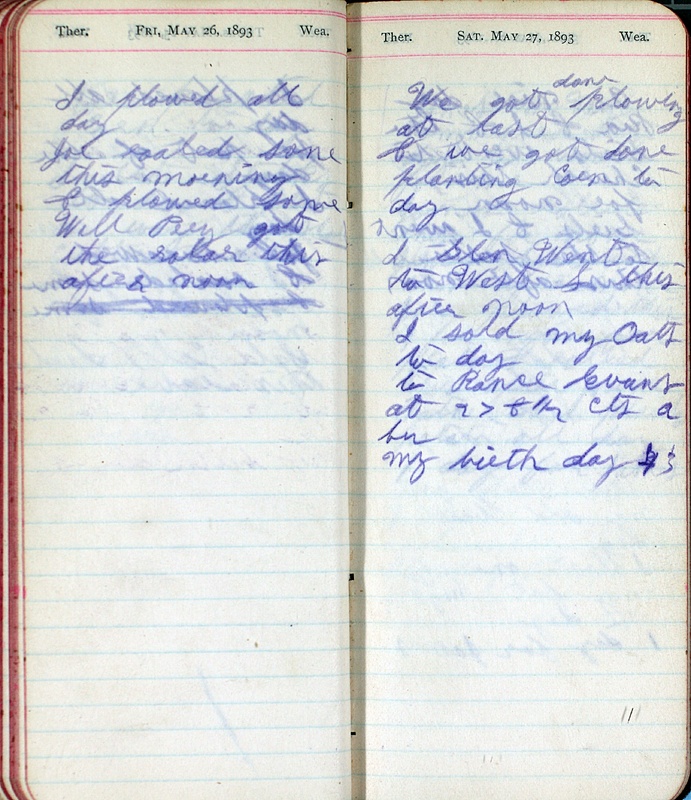 Ther. Fri, May 26, 1893 Wea.
I plowed all
day
Joe roaled some
this morning
& plowed some
Will Pery got
the rolar this
after noon
Ther. Sat. May 27, 1893 Wea.
done
We got plowing
at last
& we got done
planting Corn to
day
I Glen Went
to West S this
after noon
I sold my Oats
to day
to Rance Evans
at cts a
bu
my birth day